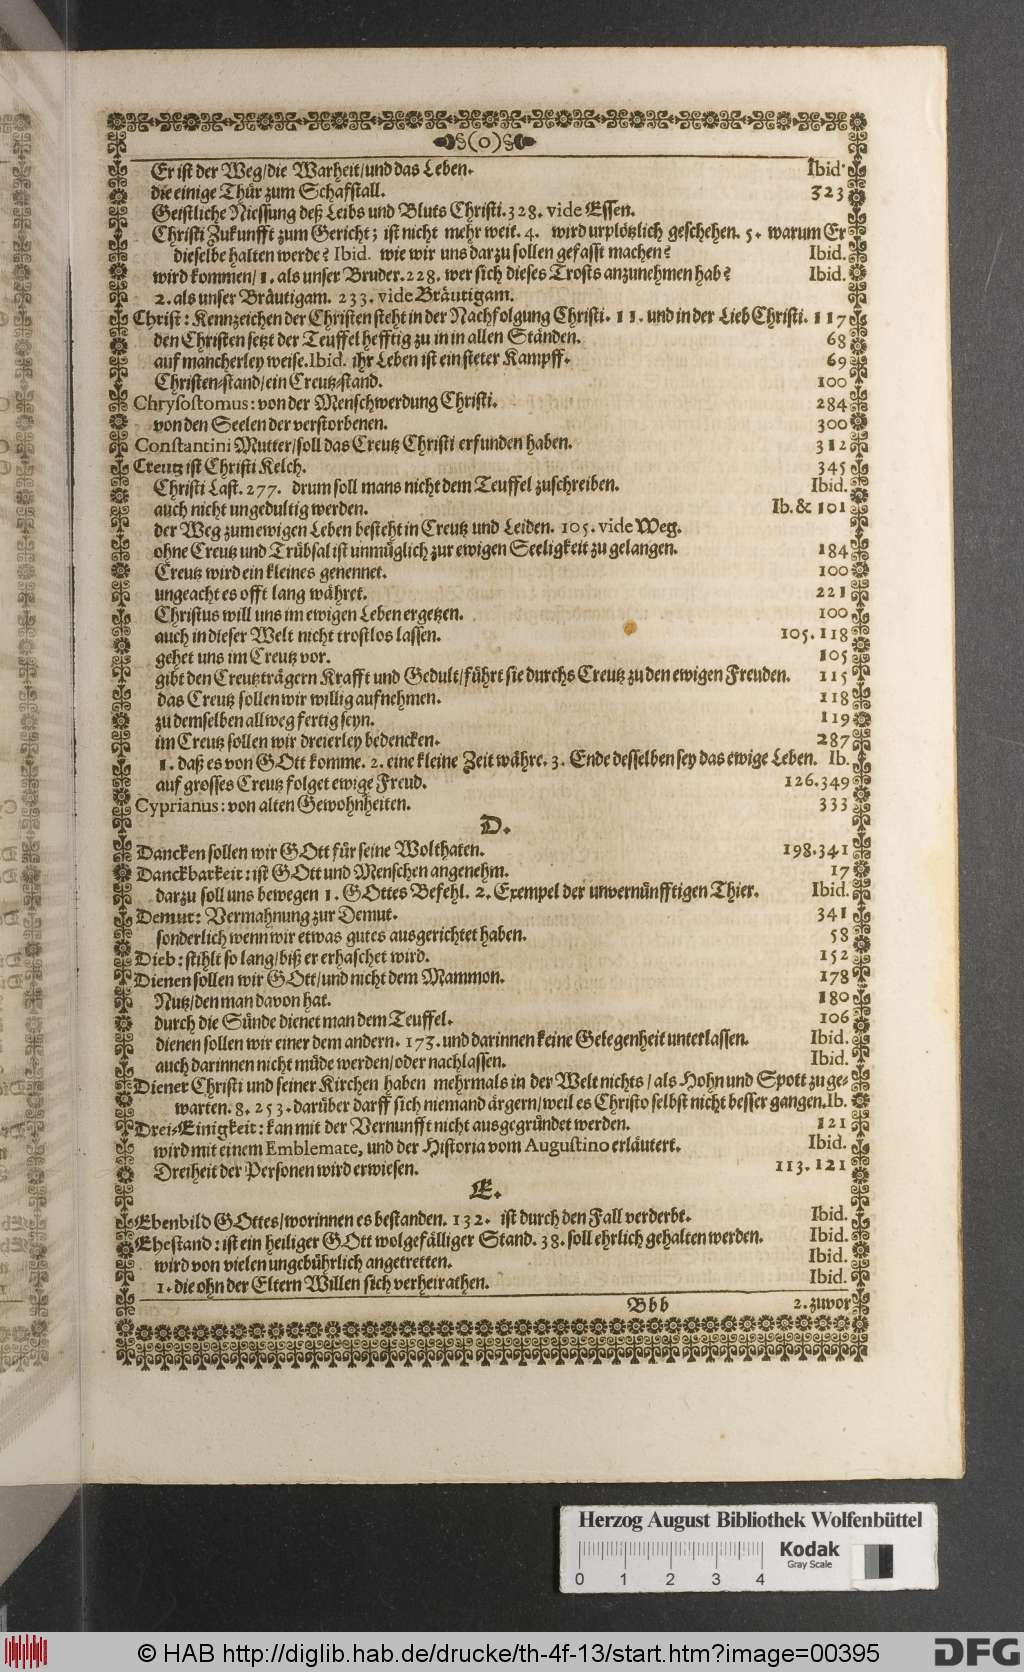 §(o)§
Er ist der Weg/die Warheit/und das Leben. Ibid.
die einige Thür zum Schafstall. 323
Geistliche Niessung deß Leibs und Bluts Christi. 328. vide Essen.
Christi Zukunfft zum Gericht; ist nicht mehr weit. 4. wird urplötzlich geschehen. 5. warum Er
dieselbe halten werde? Ibid. wie wir uns darzu sollen gefasst machen? Ibid.
wird kommen/ 1. als unser Bruder. 228. wer sich dieses Trosts anzunehmen hab? Ibid.
2. als unser Bräutigam. 233. vide Bräutigam.
Christ: Kennzeichen der Christen steht in der Nachfolgung Christi. 11. und in der Lieb Christi. 117
den Christen setzt der Teuffel hefftig zu in in allen Ständen. 68
auf mancherley weise. Ibid. ihr Leben ist ein steter Kampff. 69
Christen-stand/ein Creutz-stand. 100
Chrysostomus: von der Menschwerdung Christi. 284
von den Seelen der verstorbenen. 300
Constantini Mutter/soll das Creutz Christi erfunden haben. 312
Creutz ist Christi Kelch. 345
Christi Last. 277. drum soll mans nicht dem Teuffel zuschreiben. Ibid.
auch nicht ungedultig werden. Ib. & 101
der Weg zum ewigen Leben besteht in Creutz und Leiden. 105. vide Weg.
ohne Creutz und Trübsal ist unmüglich zur ewigen Seeligkeit zu gelangen. 184
Creutz wird ein kleines genennet. 100
ungeacht es offt lang währet. 221
Christus will uns im ewigen Leben ergetzen. 100
auch in dieser Welt nicht trostlos lassen. 105. 118
gehet uns im Creutz vor. 105
gibt den Creutzträgern Krafft und Gedult/führt sie durchs Creutz zu den ewigen Freuden. 115
das Creutz sollen wir willig aufnehmen. 118
zu demselben allweg fertig seyn. 119
im Creutz sollen wir dreierley bedencken. 287
1. daß es von GOtt komme. 2. eine kleine Zeit währe. 3. Ende desselben sey das ewige Leben. Ib.
auf grosses Creutz folget ewige Freud. 126. 349
Cyprianus: von alten Gewohnheiten. 333
D.
Dancken sollen wir GOtt für seine Wolthaten. 198. 341
Danckbarkeit: ist GOtt und Menschen angenehm. 17
darzu soll uns bewegen 1. GOttes Befehl. 2. Exempel der unvernünfftigen Thier. Ibid.
Demut: Vermahnung zur Demut. 341
sonderlich wenn wir etwas gutes ausgerichtet haben. 58
Dieb: stihlt so lang/biß er erhaschet wird. 152
Dienen sollen wir GOtt/und nicht dem Mammon. 178
Nutz/den man davon hat. 180
durch die Sünde dienet man dem Teuffel. 106
dienen sollen wir einer dem andern. 173. und darinnen keine Gelegenheit unterlassen. Ibid.
auch darinnen nicht müde werden/oder nachlassen. Ibid.
Diener Christi und seiner Kirchen haben mehrmals in der Welt nichts / als Hohn und Spott zu ge-
warten. 8. 253. darüber darff sich niemand ärgern/weil es Christo selbst nicht besser gangen. Ib.
Drei-Einigkeit: kan mit der Vernunfft nicht ausgegründet werden. 121
wird mit einem Emblemate, und der Historia vom Augustino erläutert. Ibid.
Dreiheit der Personen wird erwiesen. 113. 121
E.
Ebenbild GOttes/worinnen es bestanden. 132. ist durch den Fall verderbt. Ibid.
Ehestand: ist ein heiliger GOtt wolgefälliger Stand. 38. soll ehrlich gehalten werden. Ibid.
wird von vielen ungebührlich angetretten. Ibid.
1. die ohn der Eltern Willen sich verheirathen. Ibid.
Bbb 2. zuvor
Herzog August Bibliothek Wolfenbüttel
Kodak
Gray Scale
0 1 2 3 4
© HAB http://diglib.hab.de/drucke/th-4f-13/start.htm?image=00395
DFG